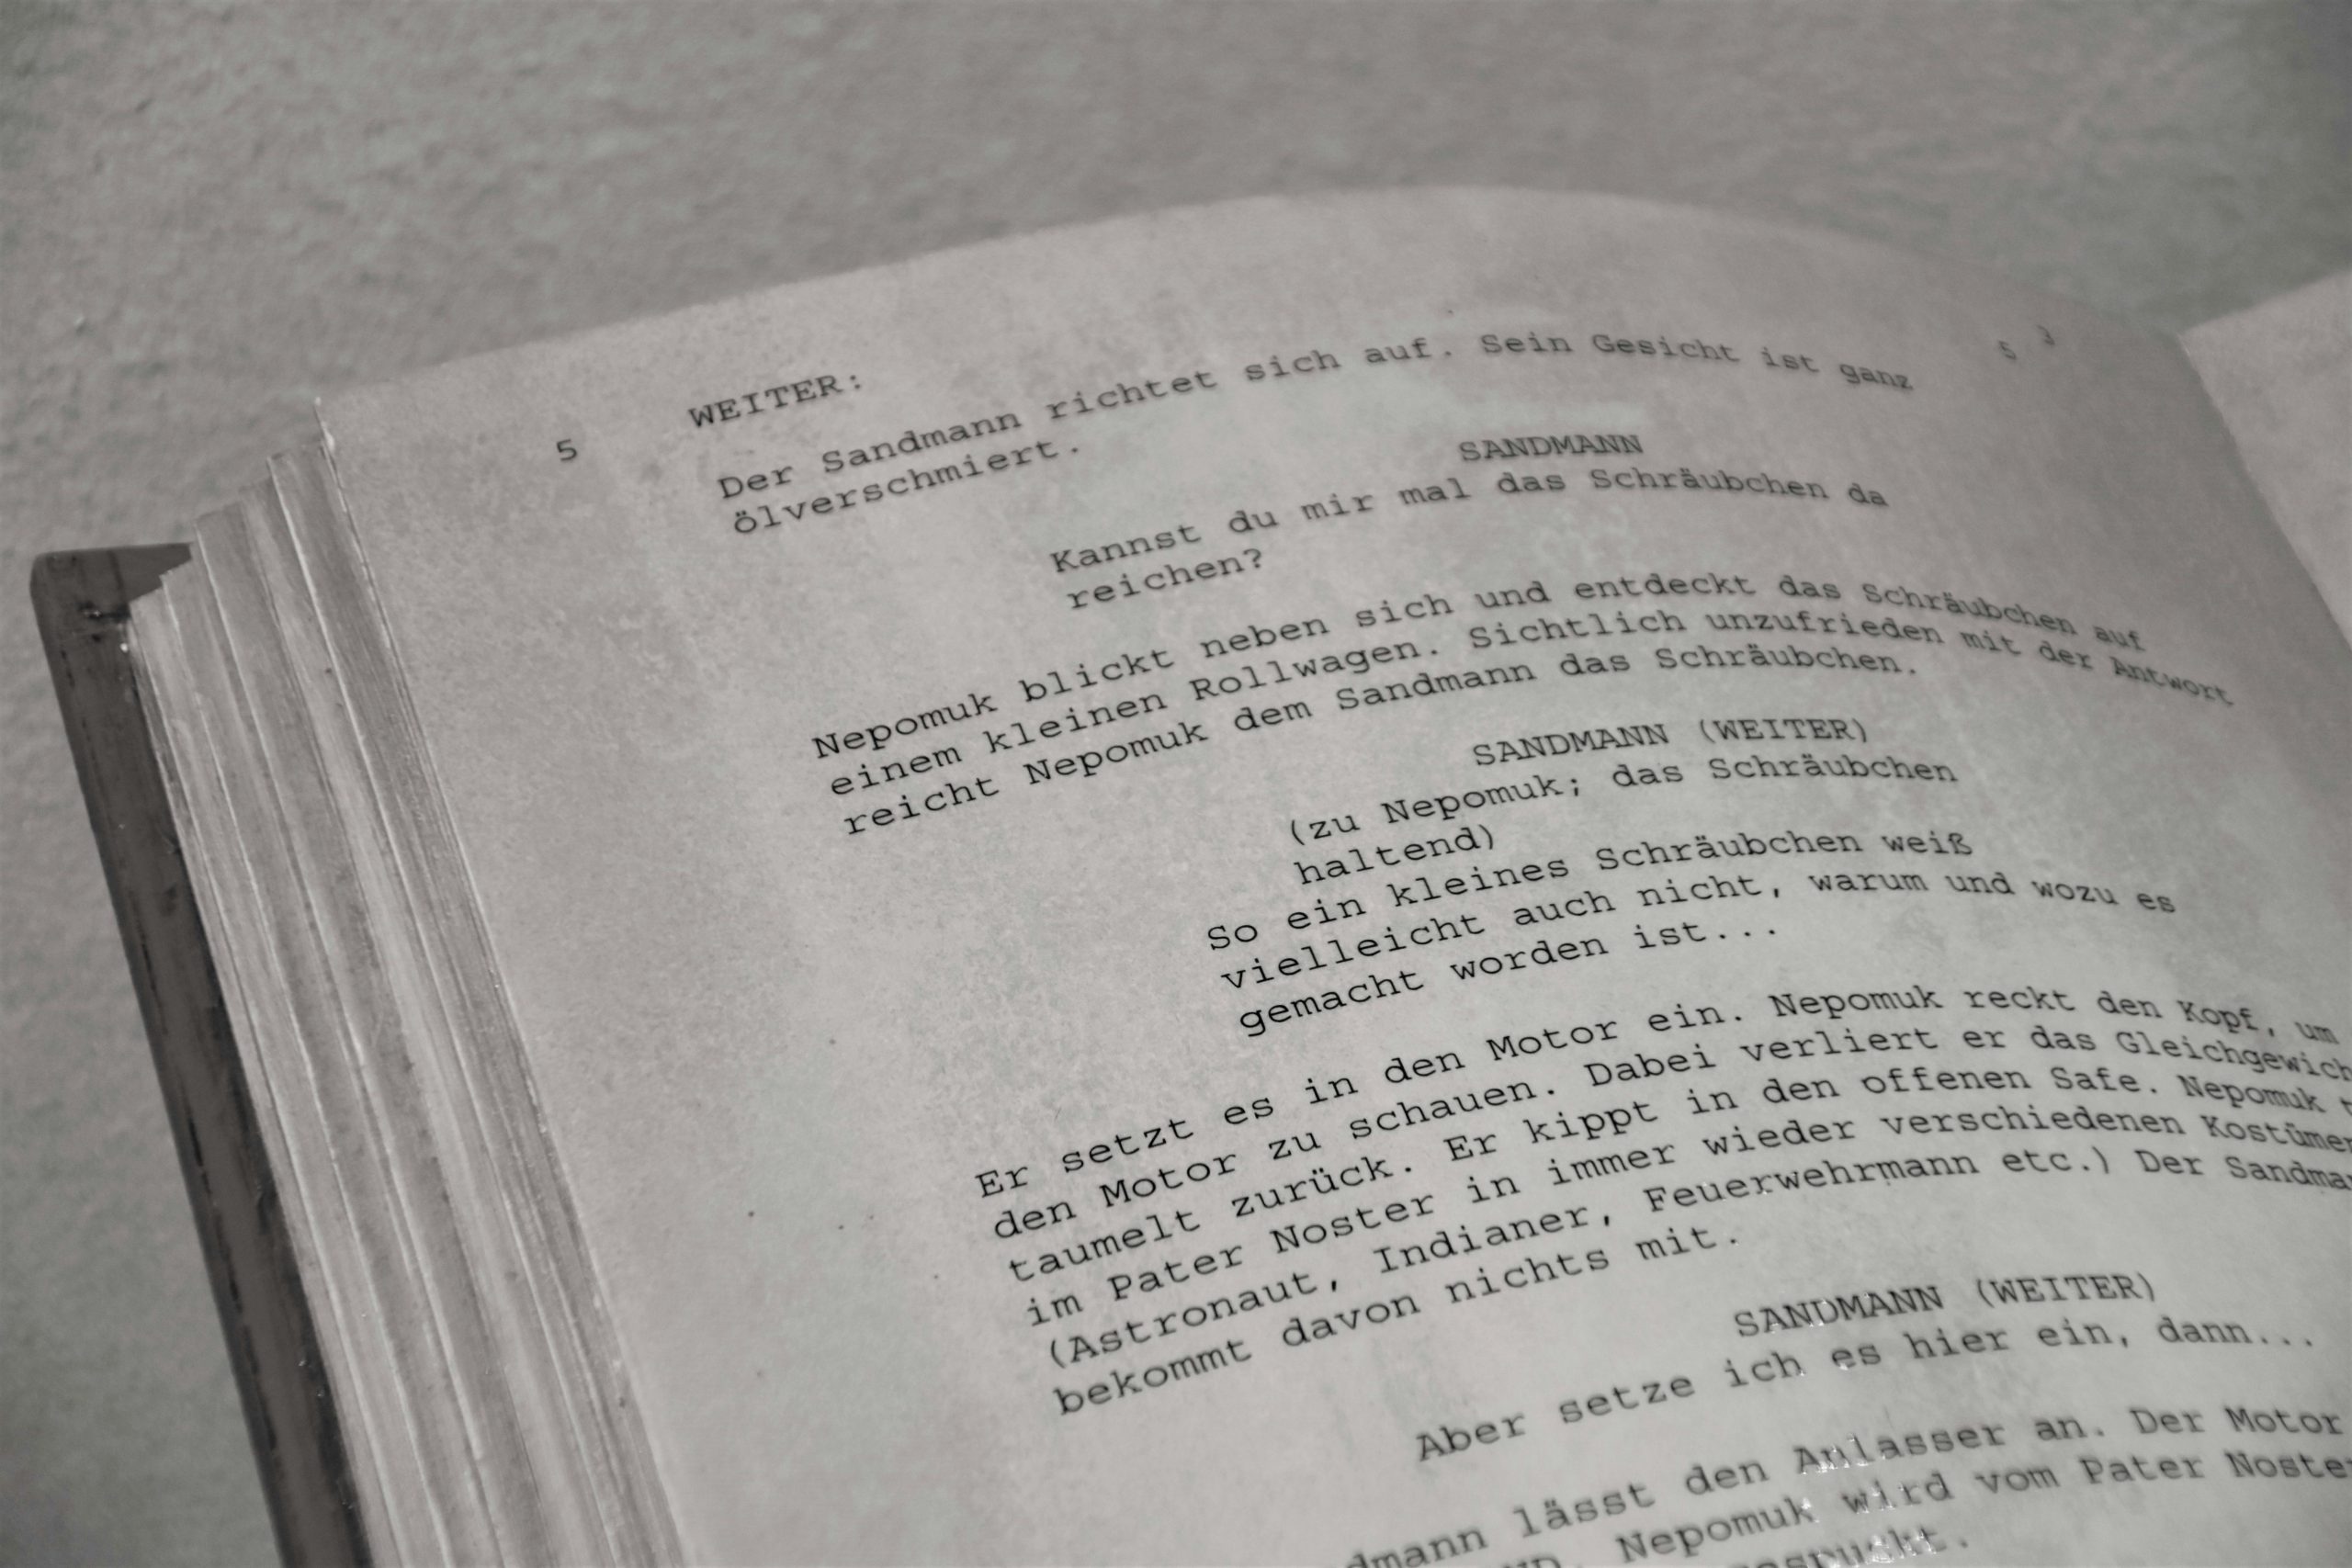 3
5 WEITER: 5
Der Sandmann richtet sich auf. Sein Gesicht ist ganz
ölverschmiert.
SANDMANN
Kannst du mir mal das Schräubchen da
reichen?
Nepomuk blickt neben sich und entdeckt das Schräubchen auf
einem kleinen Rollwagen. Sichtlich unzufrieden mit der Antwort
reicht Nepomuk dem Sandmann das Schräubchen.
SANDMANN (WEITER)
(zu Nepomuk; das Schräubchen
haltend)
So ein kleines Schräubchen weiß
vielleicht auch nicht, warum und wozu es
gemacht worden ist...
Er setzt es in den Motor ein. Nepomuk reckt den Kopf, um
den Motor zu schauen. Dabei verliert er das Gleichgewich
taumelt zurück. Er kippt in den offenen Safe. Nepomuk
im Pater Noster in immer wieder verschiedenen Kostüme
(Astronaut, Indianer, Feuerwehrmann etc.) Der Sandma
bekommt davon nichts mit.
SANDMANN (WEITER)
Aber setze ich es hier ein, dann...
dmann lässt den Anlasser an. Der Motor
Nepomuk wird vom Pater Noste